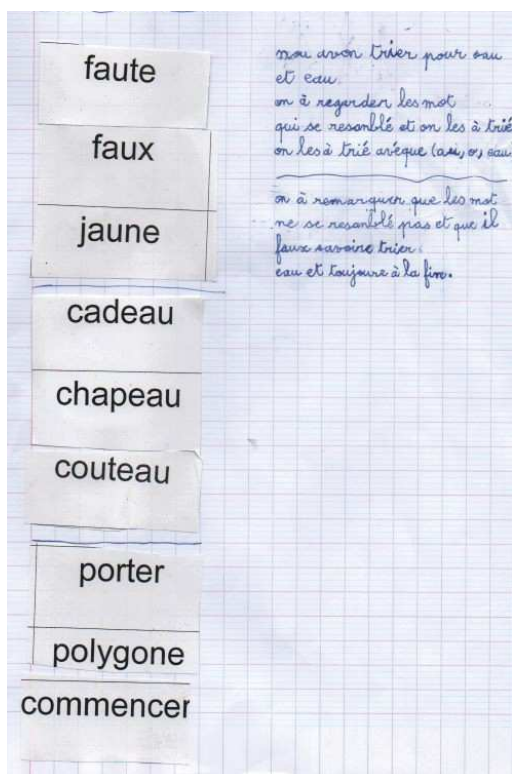 faute
faux
jaune
cadeau
chapeau
couteau
porter
polygone
commencer
nou avon trier pour eau
et eau.
on à regarder les mot
qui se resemblé et on les à trié
on les à trié avèque (au, o, eau
on à remarquer que les mot
ne se resemblé pas et que il
faux savoire trier.
eau et toujoure à la fin.